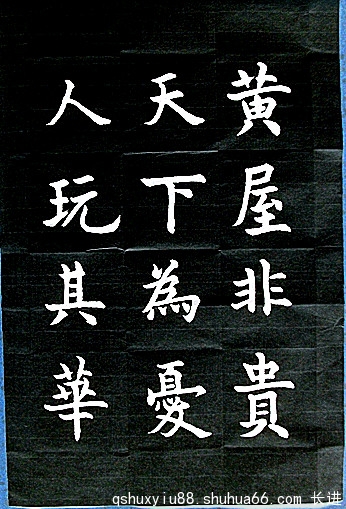 黄屋非貴
天下為憂
人玩其華
qshuxyiu88.shuhua66.com 长进